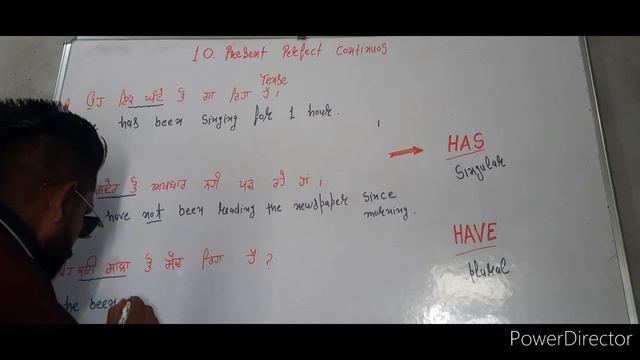 10. Present Perfect Continuos
Tense
ਉਹ ਇਕ ਘੰਟੇ ਤੋਂ ਗਾ ਰਿਹਾ ਹੈ ।
has been Singing for 1 hour.
ਸਵੇਰ ਤੋਂ ਅਖਬਾਰ ਨਹੀਂ ਪੜ ਰਹੇ ਹਾਂ ।
have not been reading the newspaper since
morning.
ਕਈ ਸਾਲਾ ਤੋਂ ਰਿਹਾ ਹੈ ?
he been
HAS
Singular
HAVE
plural
PowerDirector